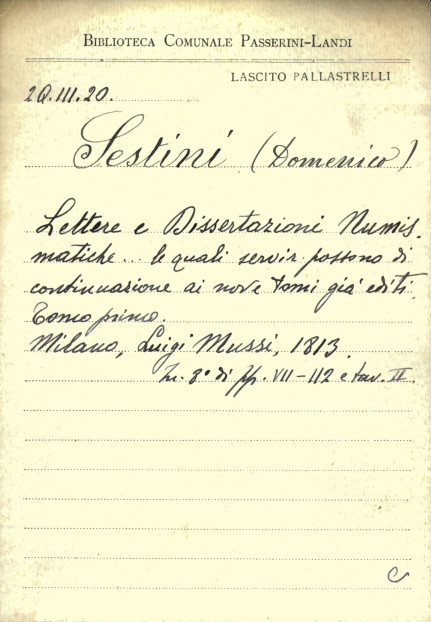 BIBLIOTECA COMUNALE PASSERINI-LANDI
LASCITO PALLASTRELLI
2Q.III.20.
Sestini (Domenico)
Lettere e Dissertazioni Numis-
matiche... le quali servir possono di
continuazione ai nove tomi già editi.
Tomo primo.
Milano, Luigi Mussi, 1813.
In. 8° di pp. VII-112 e tav. II.
C